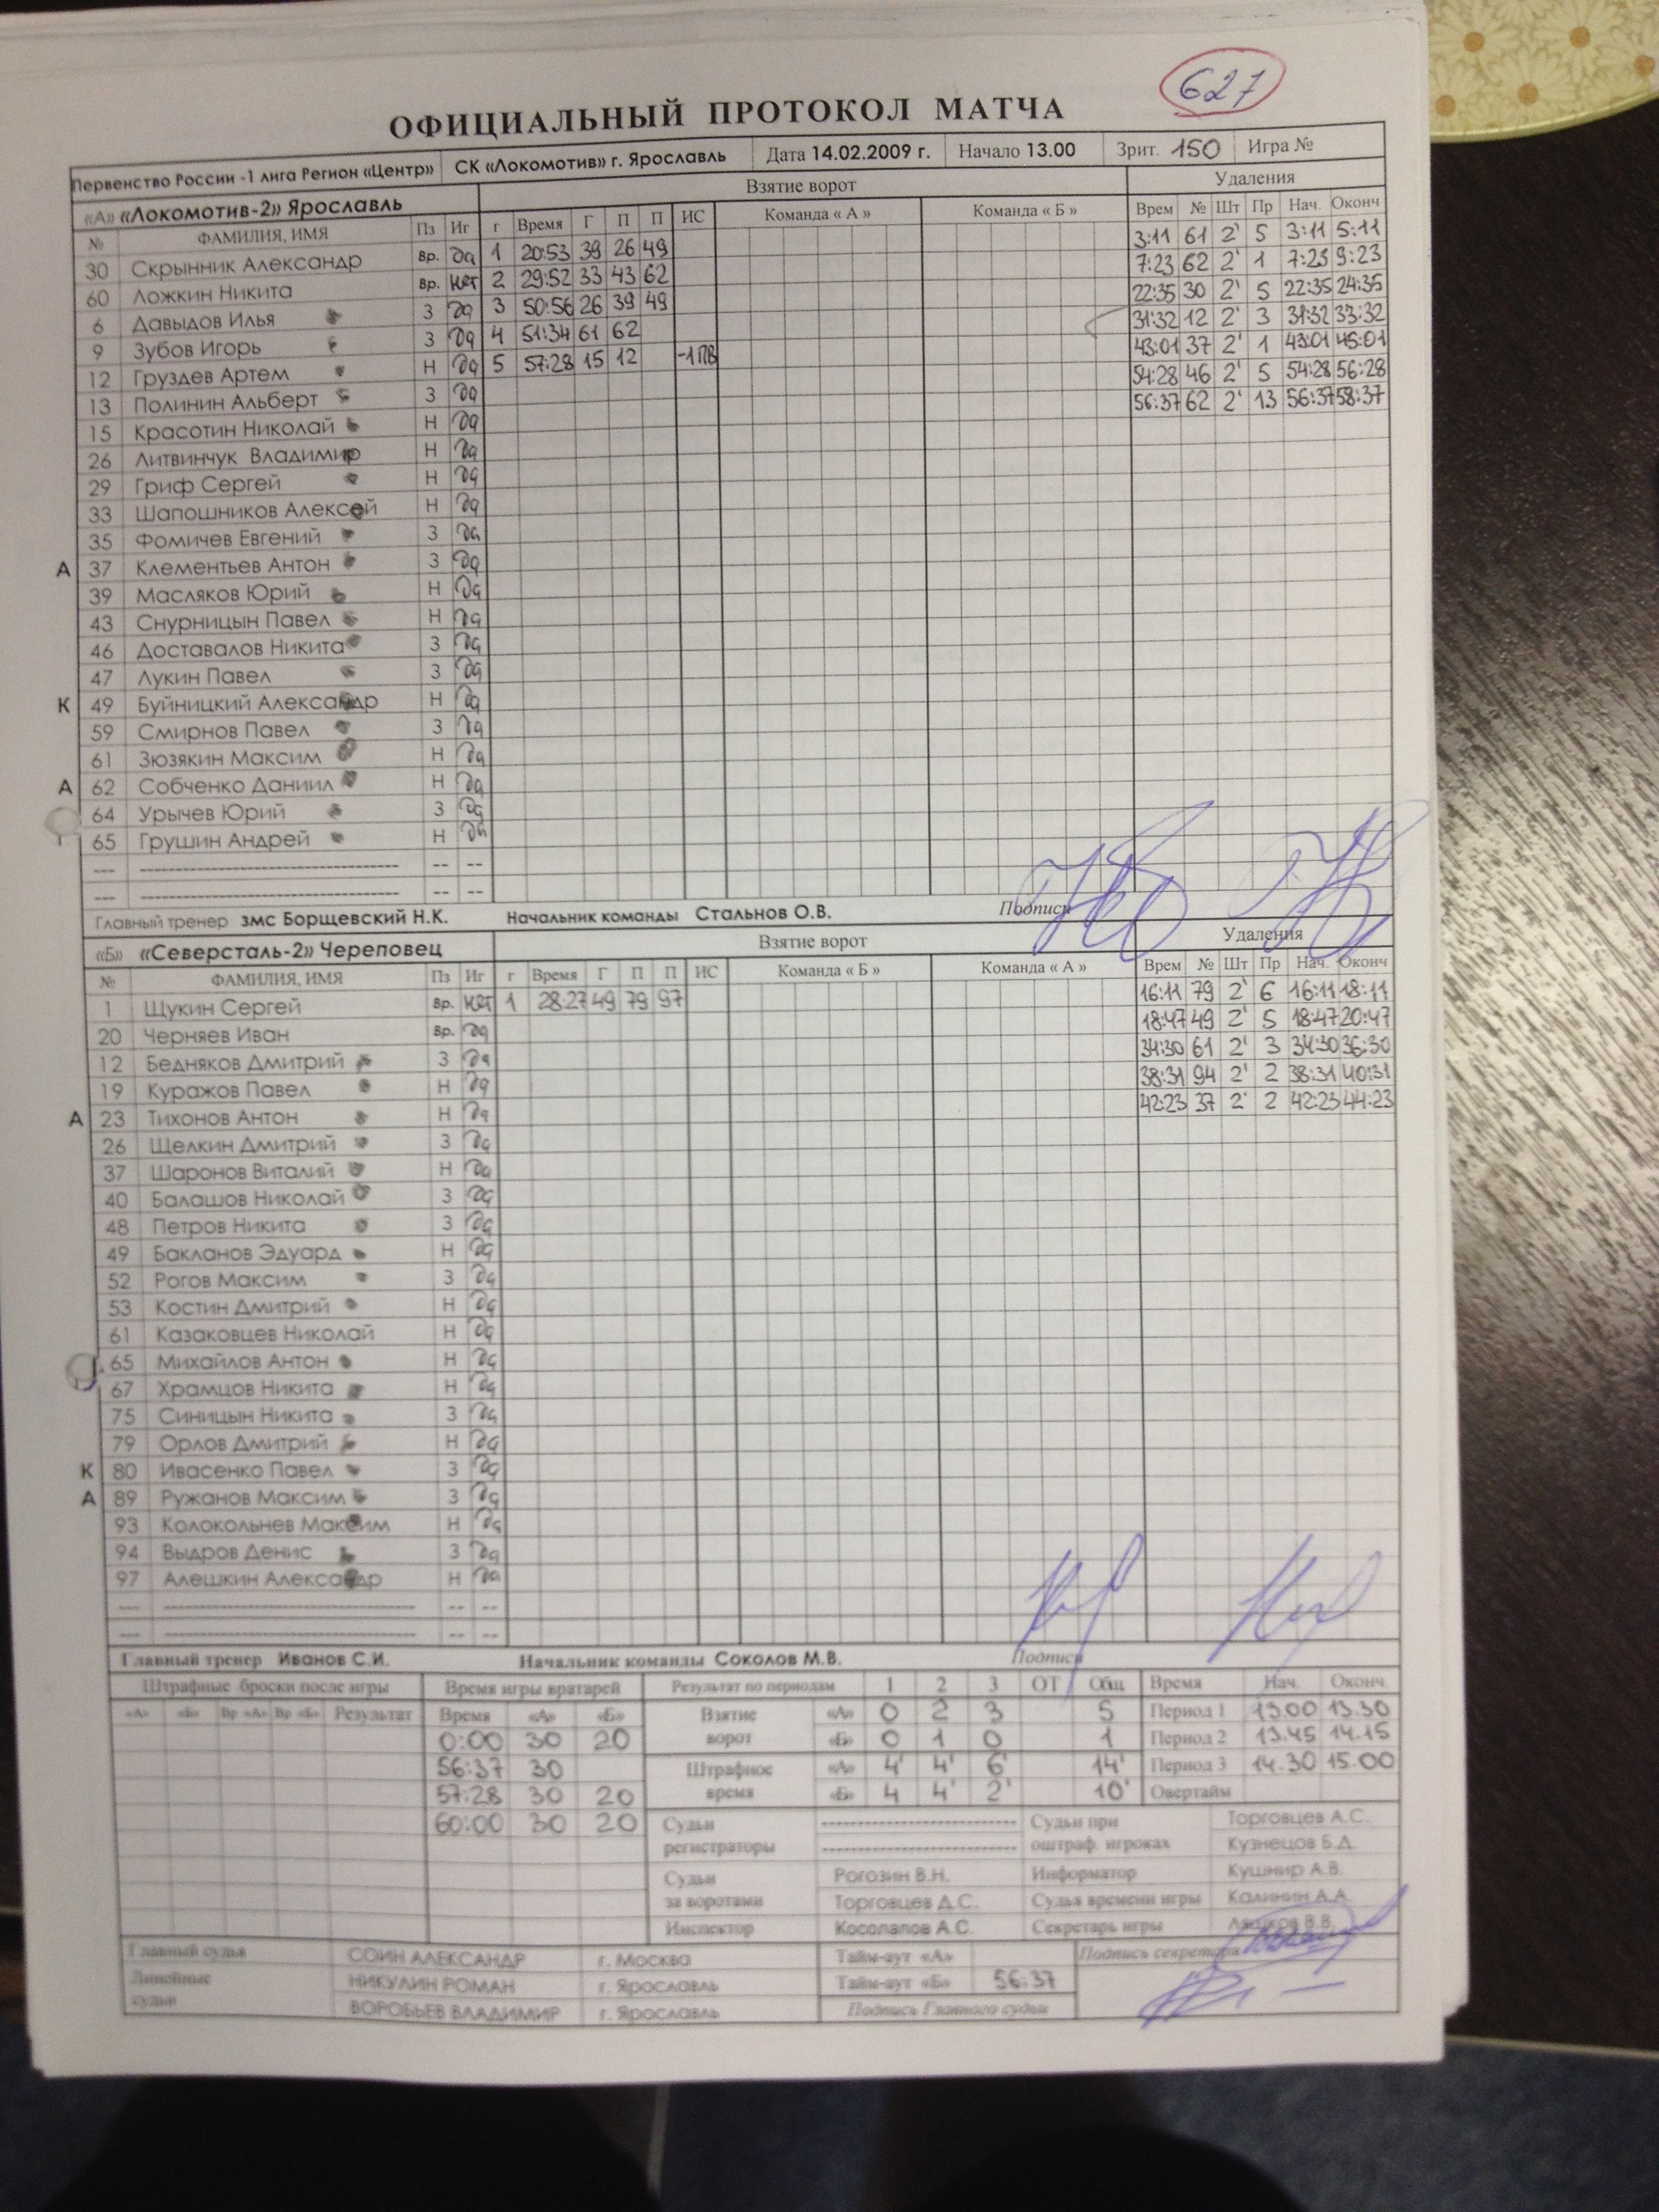 627
ОФИЦИАЛЬНЫЙ ПРОТОКОЛ МАТЧА
Первенство России -1 лига Регион «Центр» СК «Локомотив» г. Ярославль Дата 14.02.2009 г. Начало 13.00 Зрит. 150 Игра №
«А» «Локомотив-2» Ярославль Взятие ворот Удаления
№ ФАМИЛИЯ, ИМЯ Пз Иг г Время Г П П ИС Команда « А » Команда « Б » Врем № Шт Пр Нач. Оконч
30 Скрынник Александр Вр. да 1 20:53 39 26 49 3:11 61 2' 5 3:11 5:11
60 Ложкин Никита Вр. нет 2 29:52 33 43 62 7:23 62 2' 1 7:23 9:23
6 Давыдов Илья З да 3 50:56 26 39 49 22:35 30 2' 5 22:35 24:35
9 Зубов Игорь З да 4 51:34 61 62 31:32 12 2' 3 31:32 33:32
12 Груздев Артем Н да 5 57:28 15 12 -1 ПВ 43:01 37 2' 1 43:01 45:01
13 Полинин Альберт З да 54:28 46 2' 5 54:28 56:28
15 Красотин Николай Н да 56:37 62 2' 13 56:37 58:37
26 Литвинчук Владимир Н да
29 Гриф Сергей Н да
33 Шапошников Алексей Н да
35 Фомичев Евгений З да
А 37 Клементьев Антон З да
39 Масляков Юрий Н да
43 Снурницын Павел Н да
46 Доставалов Никита З да
47 Лукин Павел З да
К 49 Буйницкий Александр Н да
59 Смирнов Павел З да
61 Зюзякин Максим Н да
А 62 Собченко Даниил Н да
64 Урычев Юрий З да
65 Грушин Андрей Н да
--- ------------------------------ -- --
--- ------------------------------ -- --
Главный тренер змс Борщевский Н.К. Начальник команды Стальнов О.В. Подписи
«Б» «Северсталь-2» Череповец Взятие ворот Удаления
№ ФАМИЛИЯ, ИМЯ Пз Иг г Время Г П П ИС Команда « Б » Команда « А » Врем № Шт Пр Нач. Оконч
1 Щукин Сергей Вр. нет 1 28:27 49 79 97 16:11 79 2' 6 16:11 18:11
20 Черняев Иван Вр. да 18:47 49 2' 5 18:47 20:47
12 Бедняков Дмитрий З да 34:30 61 2' 3 34:30 36:30
19 Куражов Павел Н да 38:31 94 2' 2 38:31 40:31
А 23 Тихонов Антон Н да 42:23 37 2' 2 42:23 44:23
26 Щелкин Дмитрий З да
37 Шаронов Виталий Н да
40 Балашов Николай З да
48 Петров Никита З да
49 Бакланов Эдуард Н да
52 Рогов Максим З да
53 Костин Дмитрий Н да
61 Казаковцев Николай Н да
65 Михайлов Антон Н да
67 Храмцов Никита Н да
75 Синицын Никита З да
79 Орлов Дмитрий Н да
К 80 Ивасенко Павел З да
А 89 Ружанов Максим З да
93 Колокольнев Максим Н да
94 Выдров Денис З да
97 Алешкин Александр Н да
--- ------------------------------ -- --
--- ------------------------------ -- --
Главный тренер Иванов С.И. Начальник команды Соколов М.В. Подписи
Штрафные броски после игры Время игры вратарей Результат по периодам 1 2 3 ОТ Общ Время Нач. Оконч.
«А» «Б» Вр «А» Вр «Б» Результат Время «А» «Б» Взятие ворот «А» 0 2 3 5 Период 1 13.00 13.30
0:00 30 20 «Б» 0 1 0 1 Период 2 13.45 14.15
56:37 30 Штрафное время «А» 4' 4' 6' 14' Период 3 14.30 15.00
57:28 30 20 «Б» 4 4' 2' 10' Овертайм
60:00 30 20 Судьи регистраторы ------------------------ Судьи при оштраф. игроках Торговцев А.С.
------------------------ Кузнецов Б.Д.
Судьи за воротами Рогозин В.Н. Информатор Кушнир А.В.
Торговцев Д.С. Судья времени игры Калинин А.А.
Инспектор Косолапов А.С. Секретарь игры Ляшков В.В.
Главный судья СОИН АЛЕКСАНДР г. Москва Тайм-аут «А» Подпись секретаря
Линейные судьи НИКУЛИН РОМАН г. Ярославль Тайм-аут «Б» 56:37
ВОРОБЬЕВ ВЛАДИМИР г. Ярославль Подпись Главного судьи